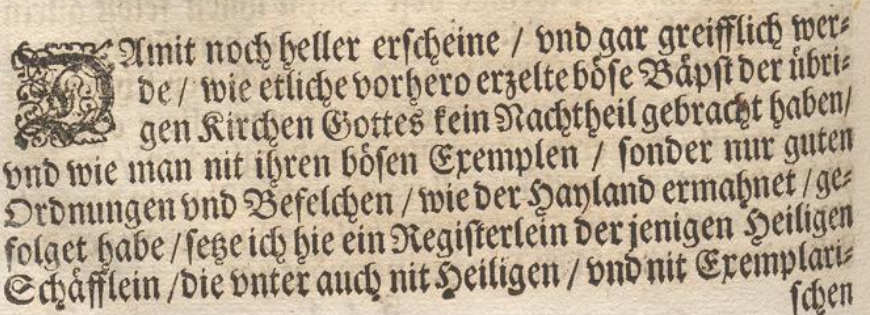 DAmit noch heller erscheine / vnd gar greifflich wer⸗
de / wie etliche vorhero erzelte böse Bäpst der übri⸗
gen Kirchen Gottes kein Nachtheil gebracht haben/
vnd wie man nit ihren bösen Exemplen / sonder nur guten
Ordnungen vnd Befelchen / wie der Hayland ermahnet / ge⸗
folget habe / setze ich hie ein Registerlein der jenigen Heiligen
Schäfflein / die vnter auch nit Heiligen / vnd nit Exemplari⸗
schen